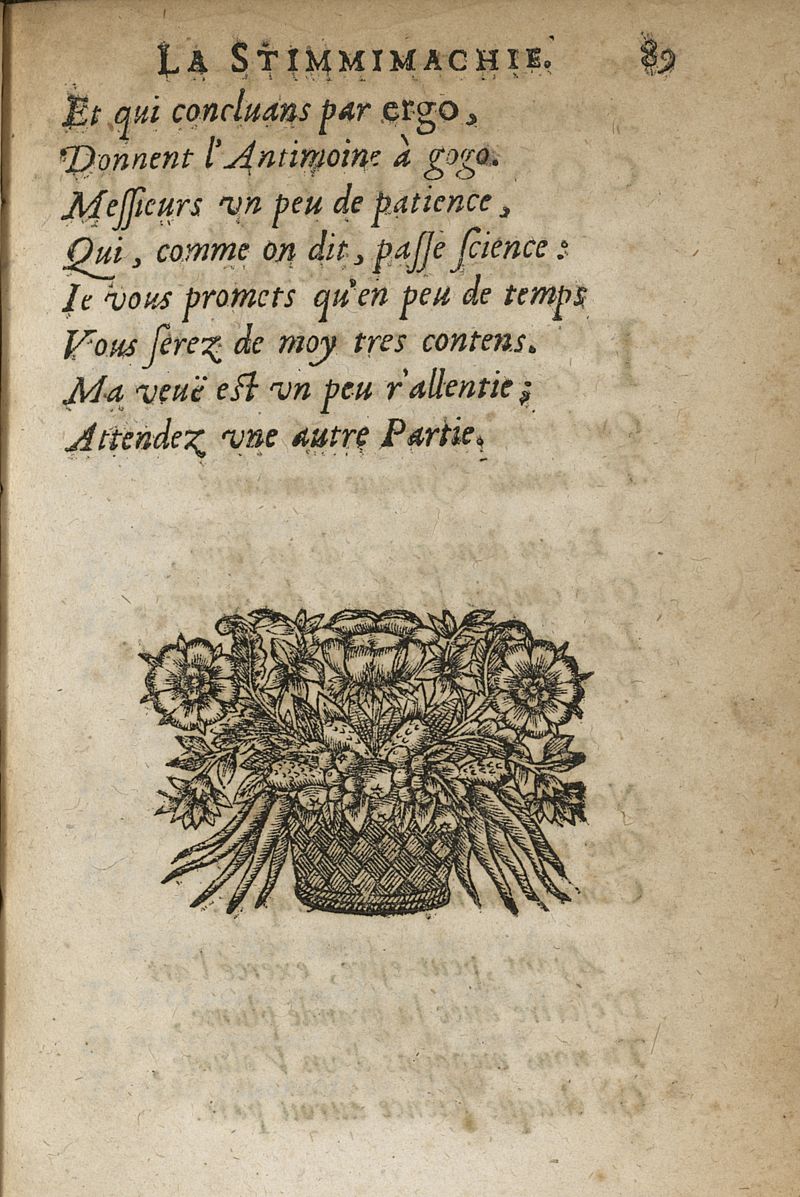 LA STIMMIMACHIE. 89
Et qui concluans par ergo,
Donnent l'Antimoine à gogo.
Meſſieurs vn peu de patience,
Qui, comme on dit, paſſe ſcience:
Ie vous promets qu'en peu de temps
Vous ſerez de moy tres contens.
Ma veuë eſt vn peu r'allentie;
Attendez vne autre Partie.